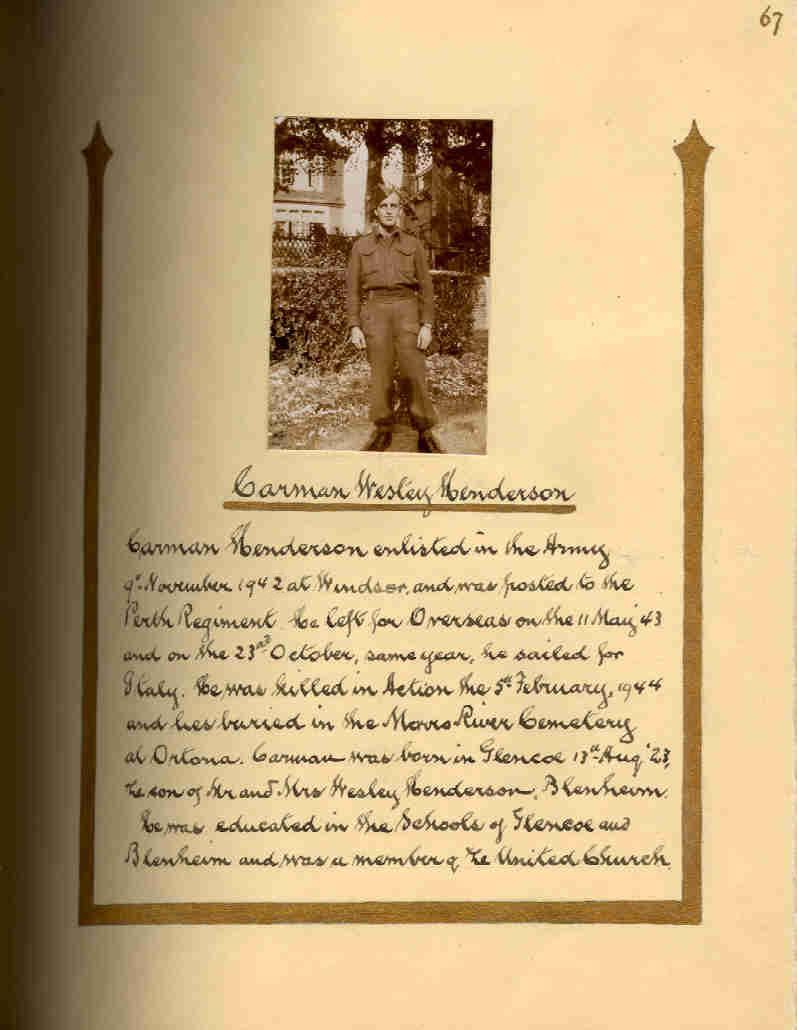 67
Carman Wesley Henderson
Carman Henderson enlisted in the Army
9th November 1942 at Windsor, and was posted to the
Perth Regiment. He left for Overseas on the 11 May 43
and on the 23rd October, same year, he sailed for
Italy. He was killed in Action the 5th February, 1944
and lies buried in the Morro River Cemetery
at Ortona. Carman was born in Glencoe 13th Aug '23,
the son of Mr and Mrs Wesley Henderson, Blenheim.
He was educated in the Schools of Glencoe and
Blenheim and was a member of the United Church.